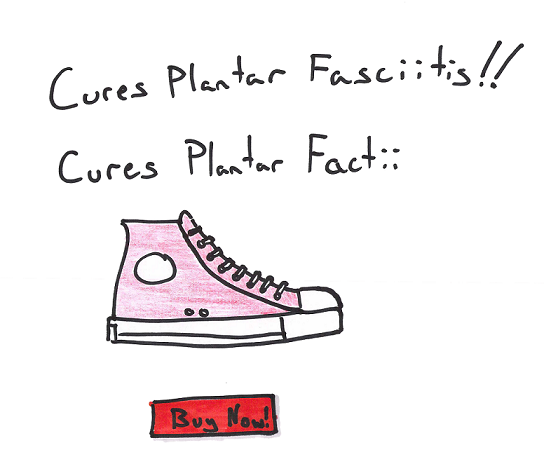 Cures Plantar Fasciitis!!
Cures Plantar Factii
Buy Now!